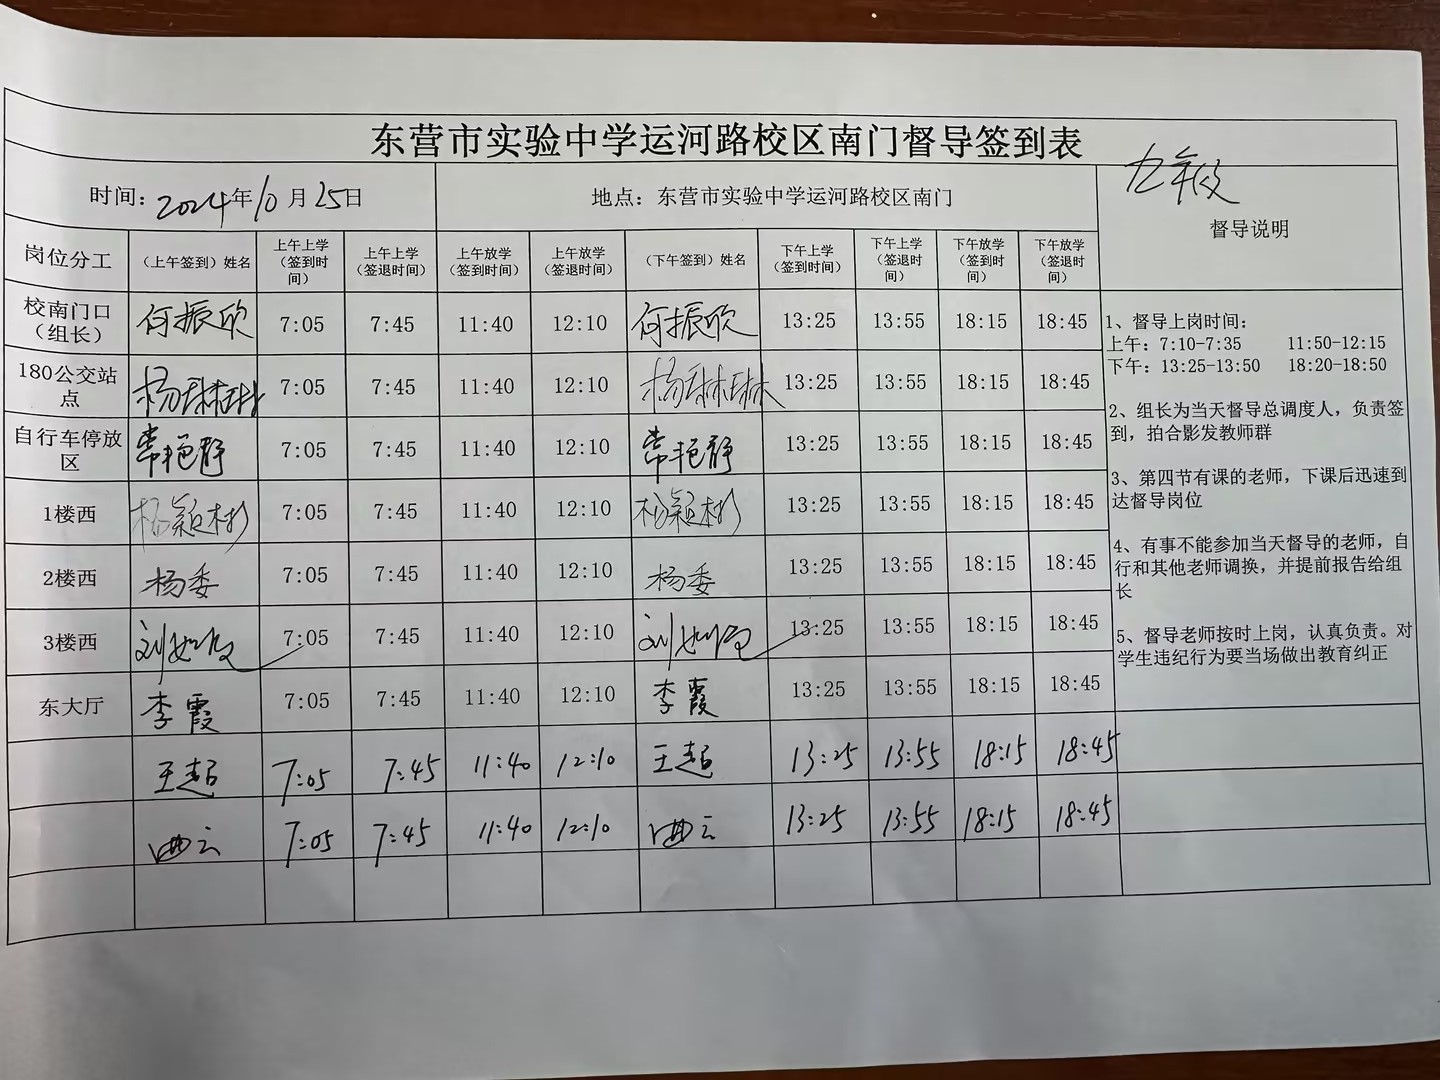 东营市实验中学运河路校区南门督导签到表
时间：2024年10月25日 地点：东营市实验中学运河路校区南门 九年级
督导说明
岗位分工 （上午签到）姓名 上午上学（签到时间） 上午上学（签退时间） 上午放学（签到时间） 上午放学（签退时间） （下午签到）姓名 下午上学（签到时间） 下午上学（签退时间） 下午放学（签到时间） 下午放学（签退时间）
校南门口（组长） 何振欣 7:05 7:45 11:40 12:10 何振欣 13:25 13:55 18:15 18:45
180公交站点 杨琳琳 7:05 7:45 11:40 12:10 杨琳琳 13:25 13:55 18:15 18:45
自行车停放区 常艳静 7:05 7:45 11:40 12:10 常艳静 13:25 13:55 18:15 18:45
1楼西 杨颖彬 7:05 7:45 11:40 12:10 杨颖彬 13:25 13:55 18:15 18:45
2楼西 杨委 7:05 7:45 11:40 12:10 杨委 13:25 13:55 18:15 18:45
3楼西 7:05 7:45 11:40 12:10 13:25 13:55 18:15 18:45
东大厅 李霞 7:05 7:45 11:40 12:10 李霞 13:25 13:55 18:15 18:45
王超 7:05 7:45 11:40 12:10 王超 13:25 13:55 18:15 18:45
曲云 7:05 7:45 11:40 12:10 曲云 13:25 13:55 18:15 18:45
1、督导上岗时间：
上午：7:10-7:35 11:50-12:15
下午：13:25-13:50 18:20-18:50
2、组长为当天督导总调度人，负责签
到，拍合影发教师群
3、第四节有课的老师，下课后迅速到
达督导岗位
4、有事不能参加当天督导的老师，自
行和其他老师调换，并提前报告给组
长
5、督导老师按时上岗，认真负责。对
学生违纪行为要当场做出教育纠正